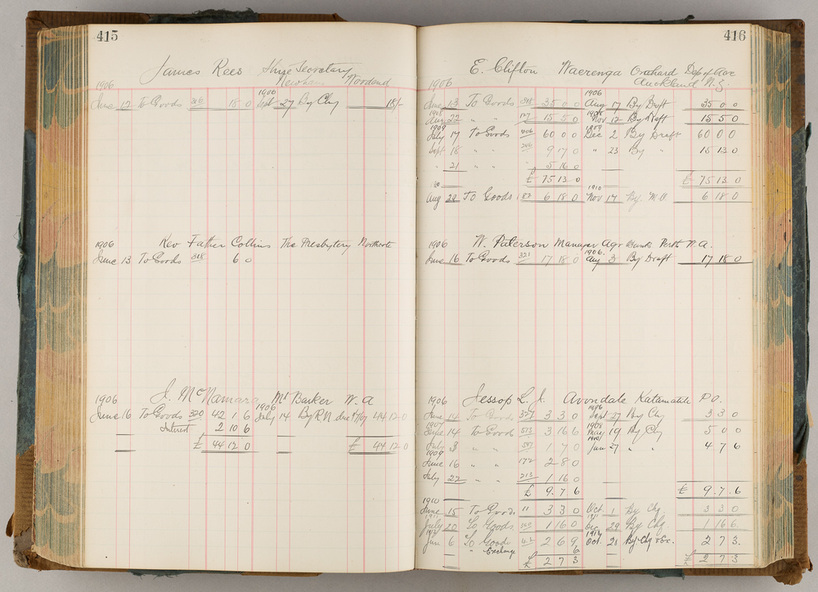 415
James Rees Hire Secretary
Woodend
1906
June 12 To Goods 15 0 Sept 27 By Chq 15/-
1906 Rev Father Collins The Presbytery
June 13 To Goods 6 0
1906 J. McNamara Mt Barker W. A
1906
June 16 To Goods 320 42 1 6 July 14 By 44 12 0
Interest 2 10 6
£ 44 12 0 £ 44 12 0
416
E. Clifton Waerenga Orchard Dep of Agr
Auckland N.Z.
1906
1906
June 13 To Goods 35 0 0 Aug 17 By Draft 35 0 0
Aug 22 " " 15 5 0 Nov 12 By Draft 15 5 0
1909
July 17 To Goods 60 0 0 Dec 2 By Draft 60 0 0
Sept 18 " " 9 17 0 " 23 By " 15 13 0
" 21 " " 5 16 0
£ 75 13 0 £ 75 13 0
1910
Aug 28 To Goods 6 18 0 Nov 17 By 6 18 0
1906 W. Paterson Manager Agr Bank Perth W.A.
1906
June 16 To Goods 331 17 18 0 Aug 3 By Draft 17 18 0
1906 Jessop L. J. Avondale Katamatite P.O.
June 14 To Goods 327 3 3 0 Sept 27 By Chq 3 3 0
Sept 14 To Goods 3 16 6 May 19 By Chq 5 0 0
July 3 " " 1 7 0 Jan 7 " " 4 7 6
1909
June 16 " " 172 2 8 0
July 22 " " 213 1 16 0
£ 9 7 6 £ 9 7 6
1910
June 15 To Goods 11 3 3 0 Oct 1 By Chq 3 3 0
July 20 To Goods 1 16 0 Dec 29 By Chq 1 16 6
1914
June 6 To Goods 2 6 9 Oct. 21 By Chq 2 7 3
" Exchange 6
£ 2 7 3 £ 2 7 3